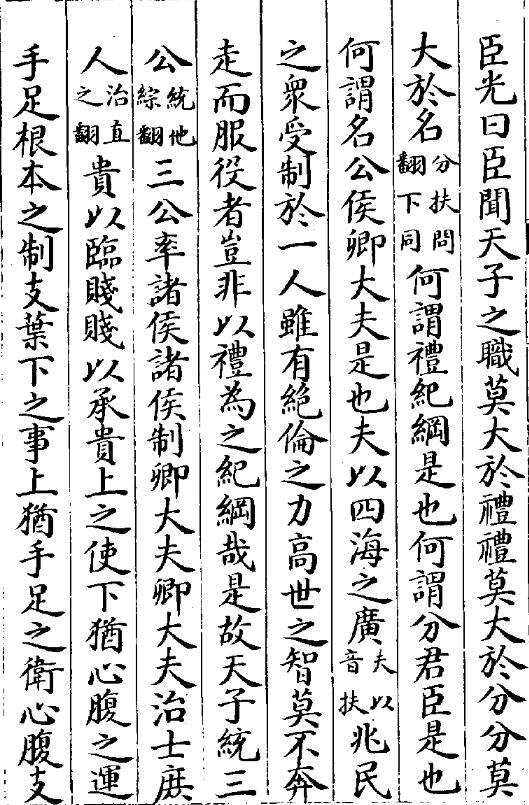 臣光曰臣聞天子之職莫大於禮禮莫大於分分莫
大於名分扶問翻下同何謂禮紀綱是也何謂分君臣是也
何謂名公侯卿大夫是也夫以四海之廣夫以音扶兆民
之衆受制於一人雖有絕倫之力高世之智莫不奔
走而服役者豈非以禮為之紀綱哉是故天子統三
公統他綜翻三公率諸侯諸侯制卿大夫卿大夫治士庶
人治直之翻貴以臨賤賤以承貴上之使下猶心腹之運
手足根本之制支葉下之事上猶手足之衛心腹支